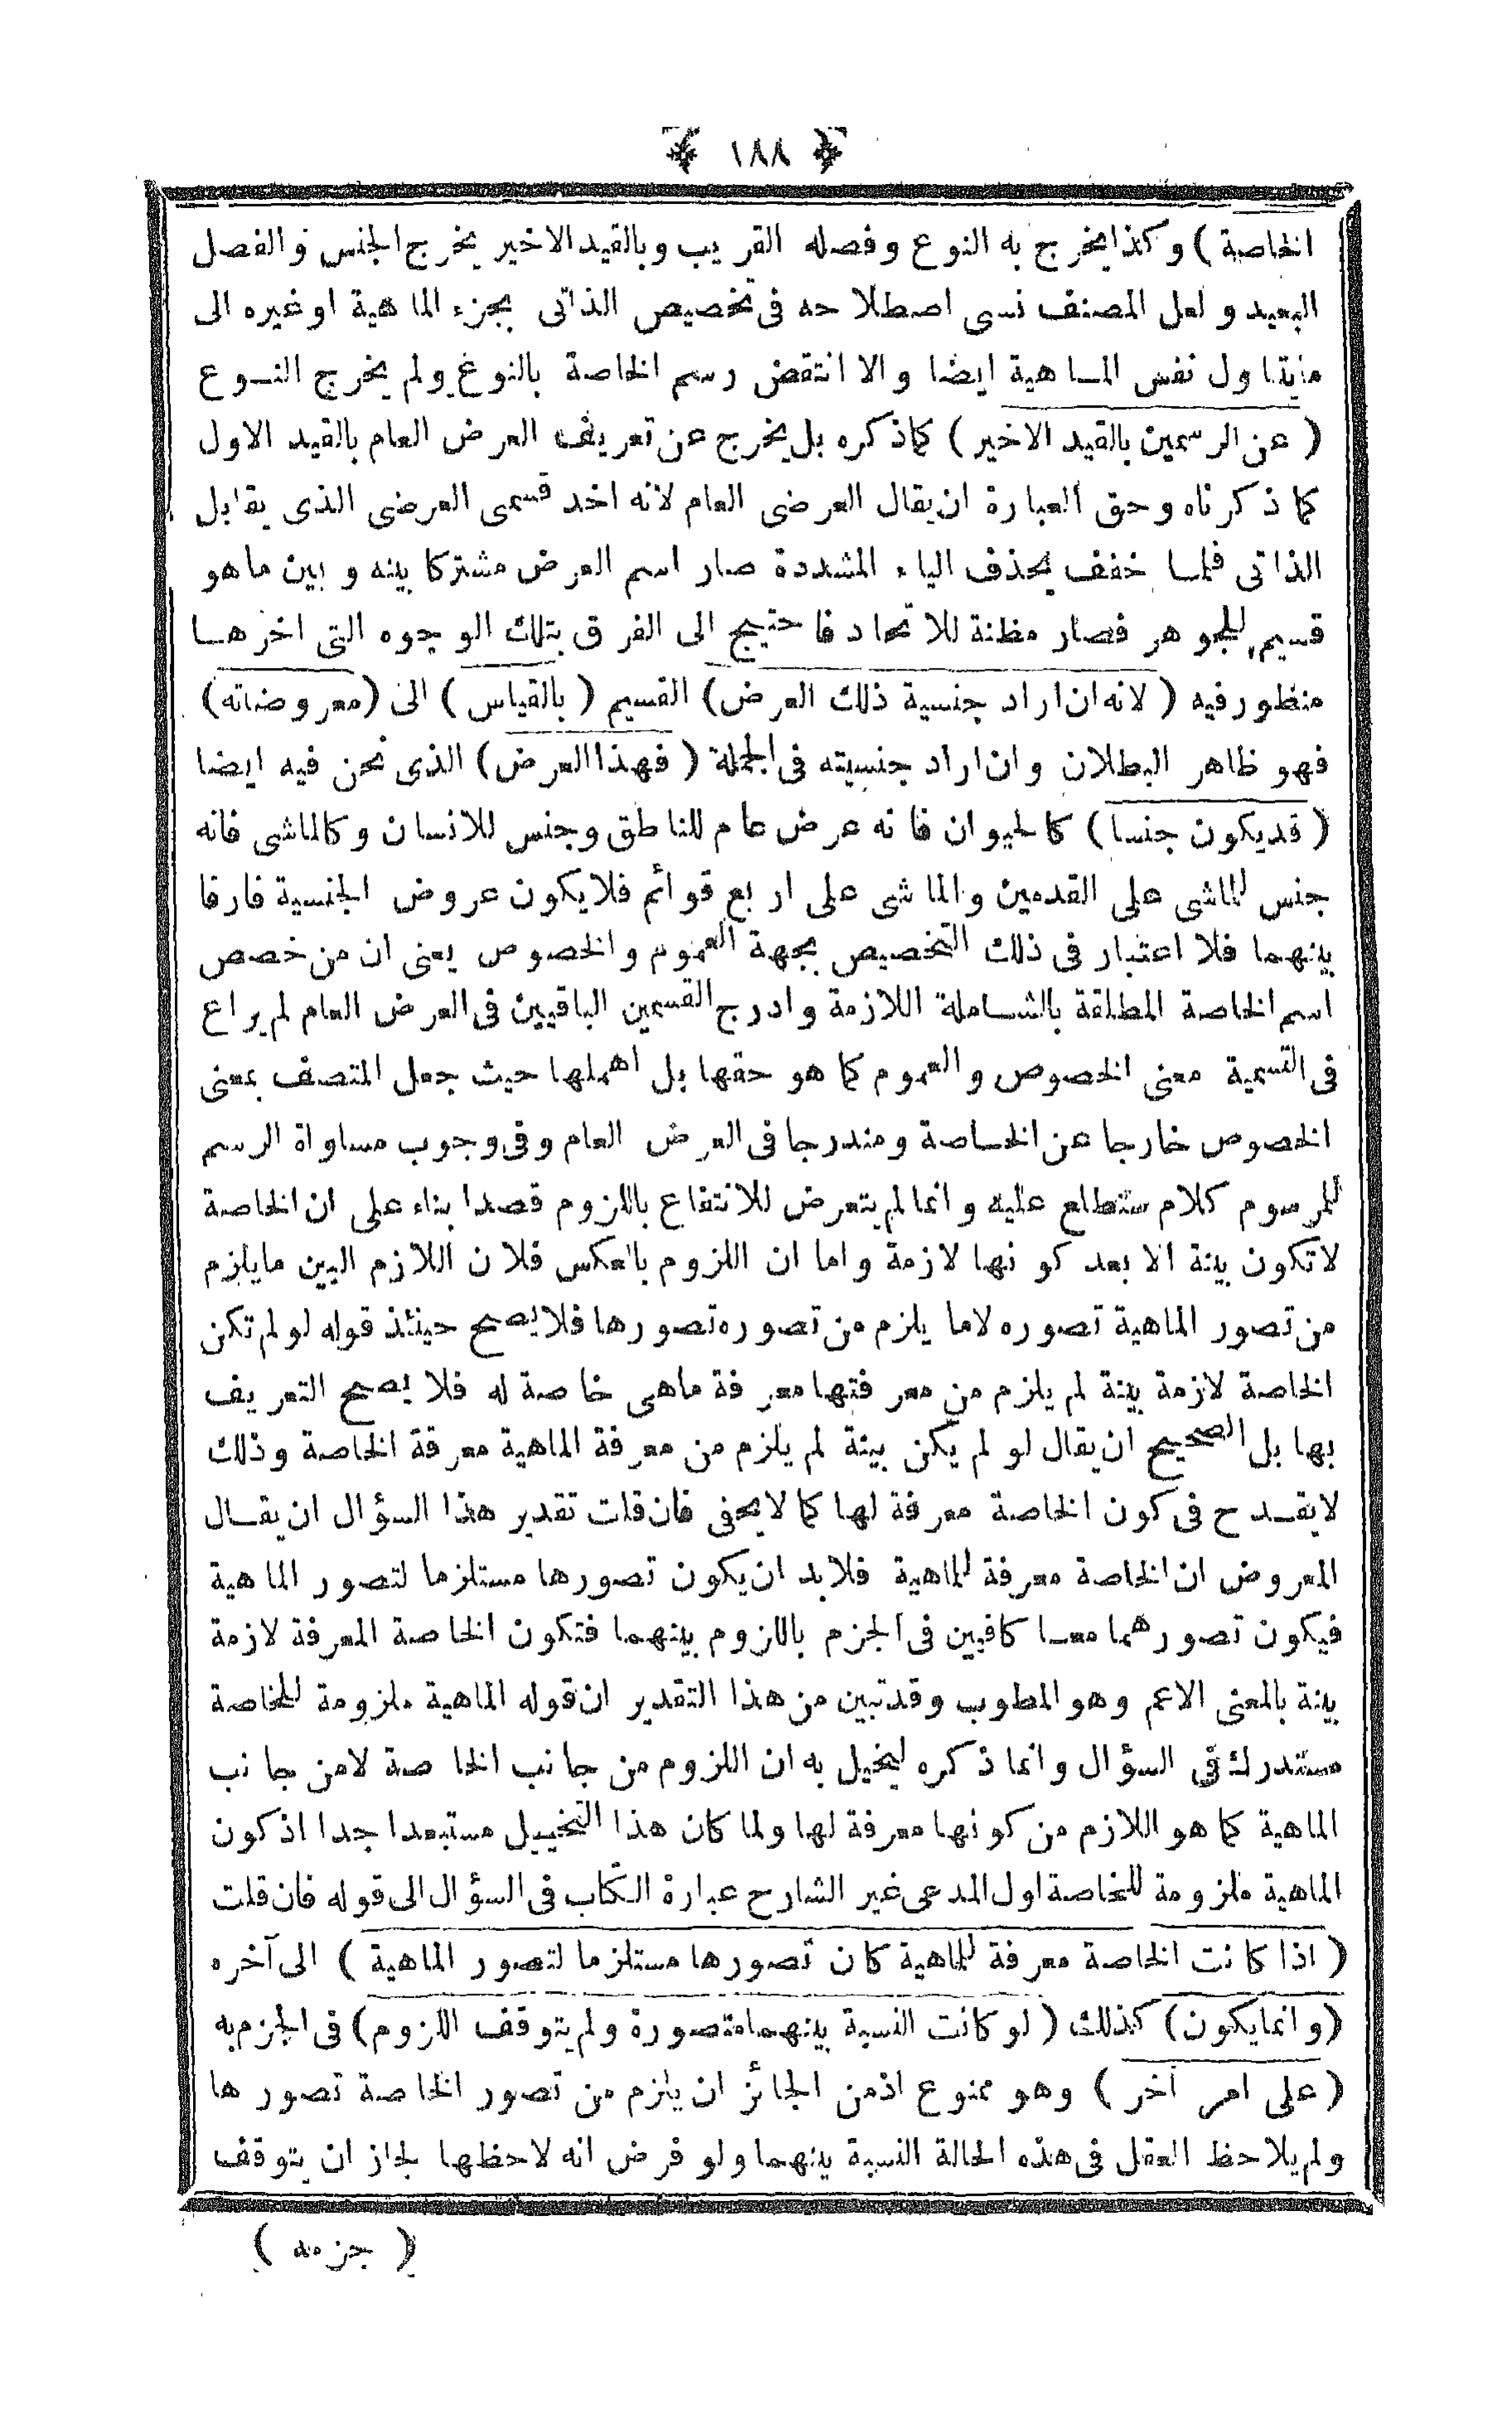 ﴿ ١٨٨ ﴾
الخاصة ) وكذا يخرج به النوع وفصله القريب وبالقيد الاخير يخرج الجنس والفصل
البعيد ولعل المصنف نسى اصطلاحه فى تخصيص الذاتى بجزء الماهية او غيره الى
مايتناول نفس الماهية ايضا والا انتقض رسم الخاصة بالنوع ولم يخرج النوع
( عن الرسمين بالقيد الاخير ) كماذكره بل يخرج عن تعريف العرض العام بالقيد الاول
كما ذكرناه وحق العبارة ان يقال العرضى العام لانه احد قسمى العرضى الذى يقابل
الذاتى فلما خفف بحذف الياء المشددة صار اسم العرض مشتركا بينه وبين ماهو
قسيم للجوهر فصار مظنة للاتحاد فاحتيج الى الفرق بتلك الوجوه التى اخرها
منظور فيه ( لانه ان اراد جنسية ذلك العرض) القسيم ( بالقياس ) الى (معروضاته)
فهو ظاهر البطلان وان اراد جنسيته فى الجملة ( فهذا العرض) الذى نحن فيه ايضا
( قديكون جنسا ) كالحيوان فانه عرض عام للناطق وجنس للانسان وكالماشى فانه
جنس للماشى على القدمين والماشى على اربع قوائم فلايكون عروض الجنسية فارقا
بينهما فلا اعتبار فى ذلك التخصيص بجهة العموم والخصوص يعنى ان من خصص
اسم الخاصة المطلقة بالشاملة اللازمة وادرج القسمين الباقيين فى العرض العام لم يراع
فى التسمية معنى الخصوص والعموم كما هو حقها بل اهملها حيث جعل المتصف بمعنى
الخصوص خارجا عن الخاصة ومندرجا فى العرض العام وفى وجوب مساواة الرسم
للمرسوم كلام ستطلع عليه وانما لم يتعرض للانتفاع باللزوم قصدا بناء على ان الخاصة
لاتكون بينة الا بعد كونها لازمة واما ان اللزوم بالعكس فلان اللازم البين مايلزم
من تصور الماهية تصوره لاما يلزم من تصوره تصورها فلا يصح حينئذ قوله لو لم تكن
الخاصة لازمة بينة لم يلزم من معرفتها معرفة ماهى خاصة له فلا يصح التعريف
بها بل الصحيح ان يقال لو لم يكن بينة لم يلزم من معرفة الماهية معرفة الخاصة وذلك
لايقدح فى كون الخاصة معرفة لها كما لايخفى فان قلت تقدير هذا السؤال ان يقال
المعروض ان الخاصة معرفة للماهية فلابد ان يكون تصورها مستلزما لتصور الماهية
فيكون تصورهما معا كافيين فى الجزم باللزوم بينهما فتكون الخاصة المعرفة لازمة
بينة بالمعنى الاعم وهو المطوب وقدتبين من هذا التقدير ان قوله الماهية ملزومة للخاصة
مستدرك فى السؤال وانما ذكره ليخيل به ان اللزوم من جانب الخاصة لامن جانب
الماهية كما هو اللازم من كونها معرفة لها ولما كان هذا التخييل مستبعدا جدا اذ كون
الماهية ملزومة للخاصة اول المدعى غير الشارح عبارة الكتاب فى السؤال الى قوله فان قلت
( اذا كانت الخاصة معرفة للماهية كان تصورها مستلزما لتصور الماهية ) الى آخره
(وانمايكون) كذلك ( لو كانت النسبة بينهما متصورة ولم يتوقف اللزوم) فى الجزم به
( على امر آخر ) وهو ممنوع اذمن الجائز ان يلزم من تصور الخاصة تصورها
ولم يلاحظ العقل فى هذه الحالة النسبة بينهما ولو فرض انه لاحظها لجاز ان يتوقف
( جزمه )